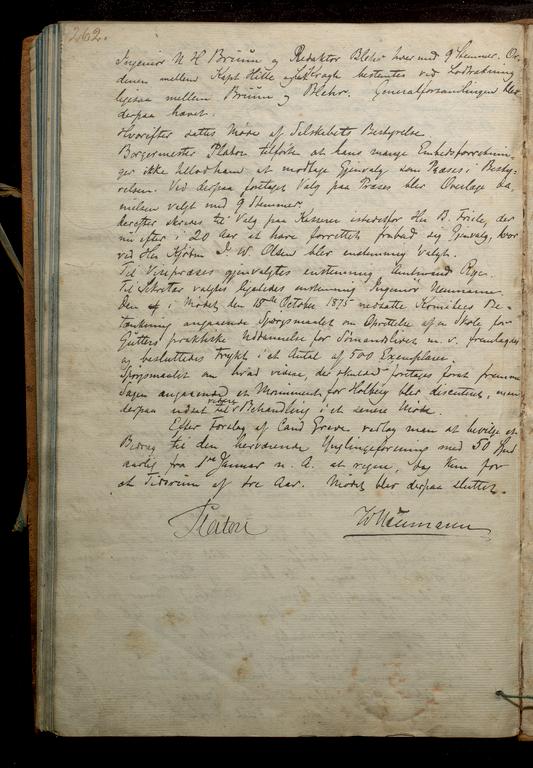 262.
Ingeniør N H Brüün og Redaktør Blehr hver med 9 Stemmer. Or-
denen mellem Kapt Hille og Krogh bestemtes ved Lodtrækning
ligesaa mellem Brüün og Blehr. Generalforsamlingen blev
derpaa hævet.
Hvorefter sattes Møde af Selskabets Bestyrelse.
Borgermester Platou tilførte at hans mange Embedsforretnin-
ger ikke tillod ham at modtage Gjenvalg som Præses i Besty-
relsen. Ved derpaa foretaget Valg paa Præses blev Overlæge Da-
nielsen valgt med 9 Stemmer.
derefter skredes til Valg paa Kasserer istedetfor Hr B. Friele, der
nu efter i 20 Aar at have forrettet frabad sig Gjenvalg, hvor
ved Hr Kjøbm J. W. Olsen blev enstemmig valgt.
Til Vicepræses gjenvalgtes enstemmig Amtmand
Til Sekretær valgtes ligeledes enstemmig Ingeniør Neumann.
Den i Mødet den 18de October 1875 nedsatte Komites Be-
tænkning angaaende Spørgsmaalet om Oprettelse af en Skole for
Gutters praktiske Uddannelse for Sømandslivet m. v. fremlagdes
og besluttedes trykt i et Antal af 500 Exemplarer.
Spørgsmaalet om hvad videre, der skulde foretages forat fremme
Sagen angaaende et Monument for Holberg blev discuteret, men
derpaa udsat til videre Behandling i et senere Møde.
Efter Forslag af Cand Greve vedtog man at bevilge et
Bidrag til den herværende Ynglingeforening med 50
aarlig fra 1ste Januar n. A. at regne, dog kun for
et Tidsrum af tre Aar. Mødet blev derpaa sluttet.
Platou
W Neumann